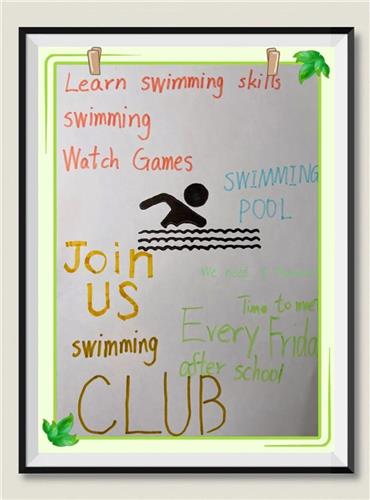 Learn swimming skills
swimming
Watch Games
SWIMMING
POOL
We need
Join
US
Time to
Every
after school
swimming
CLUB